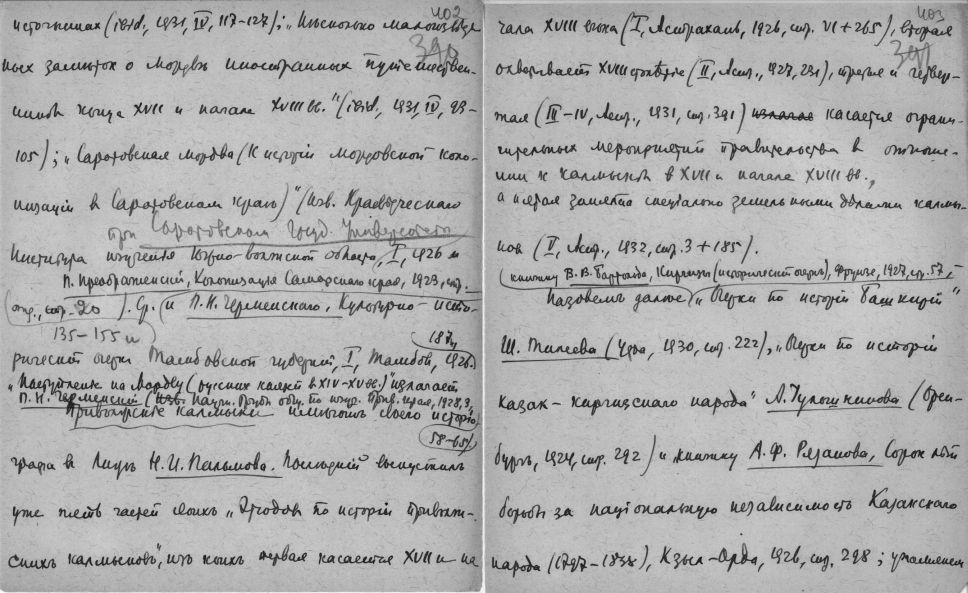 402
390
источникахъ (ibid, 1931, IV, 117-127); „Нѣсколько малоизвѣст
ныхъ замѣтокъ о Мордвѣ иностранныхъ путешествен-
никовъ конца XVII и начала XVIII вв." (ibid, 1931, IV, 93-
105); „Саратовская мордва (К исторiи мордовской коло-
низацiи в Саратовском краѣ)" (Изв. Краеведческаго
при Саратовском Госуд. Университете
Института изученiя Южно-волжской области, I, 1926 и
П. Преображенскiй, Колонизацiя Самарскаго края, 1923, стр.
отд., стр. 20). Ср. и П. Н. Черменскаго, Культурно-исто-
135-155 и
187),
рическiй очерк Тамбовской губернiи, I, Тамбов, 1926.
„Наступленiе на Мордву (русских князей в XIV-XV вв.)" излагает
П. Н. Черменскiй (Изв. Научн. общ. по изуч. края, 1928, 3,
58-65)
Приволжские калмыки имѣютъ своего исторiо-
графа в лицѣ Н. Н. Пальмова. Послѣднiй выпустилъ
уже пять частей своихъ „Этюдовъ по исторiи приволж-
скихъ калмыковъ", изъ коихъ первая касается XVII и на
403
391
чала XVIII вѣка (I, Астрахань, 1926, стр. VI + 265), вторая
охватываетъ XVIII столѣтiе (II, Астр., 1927, 231), третья и четвер-
тая (III-IV, Астр., 1931, стр. 391) касается ограни-
чительных мероприятiй правительства в отноше-
нии к калмыкам в XVII и начале XVIII вв.,
а пятая занята спецiально земельными дѣлами калмы-
ков (V, Астр., 1932, стр. 3 + 185).
книжку В. В. Бартольда, Киргизы (историческiй очеркъ), Фрунзе, 1927, стр. 57,
Назовемъ далѣе „Очерки по исторiи Башкирiи"
Ш. Типеева (Уфа, 1930, стр. 222), „Очерки по исторiи
казак-киргизскаго народа" А. Чулошникова (Орен-
бургъ, 1924, стр. 292) и книжку А. Ф. Рязанова, Сорок лѣтъ
борьбы за нацiональную независимость Казакскаго
народа (1797-1838), Кзыл-Орда, 1926, стр. 298; упомянем